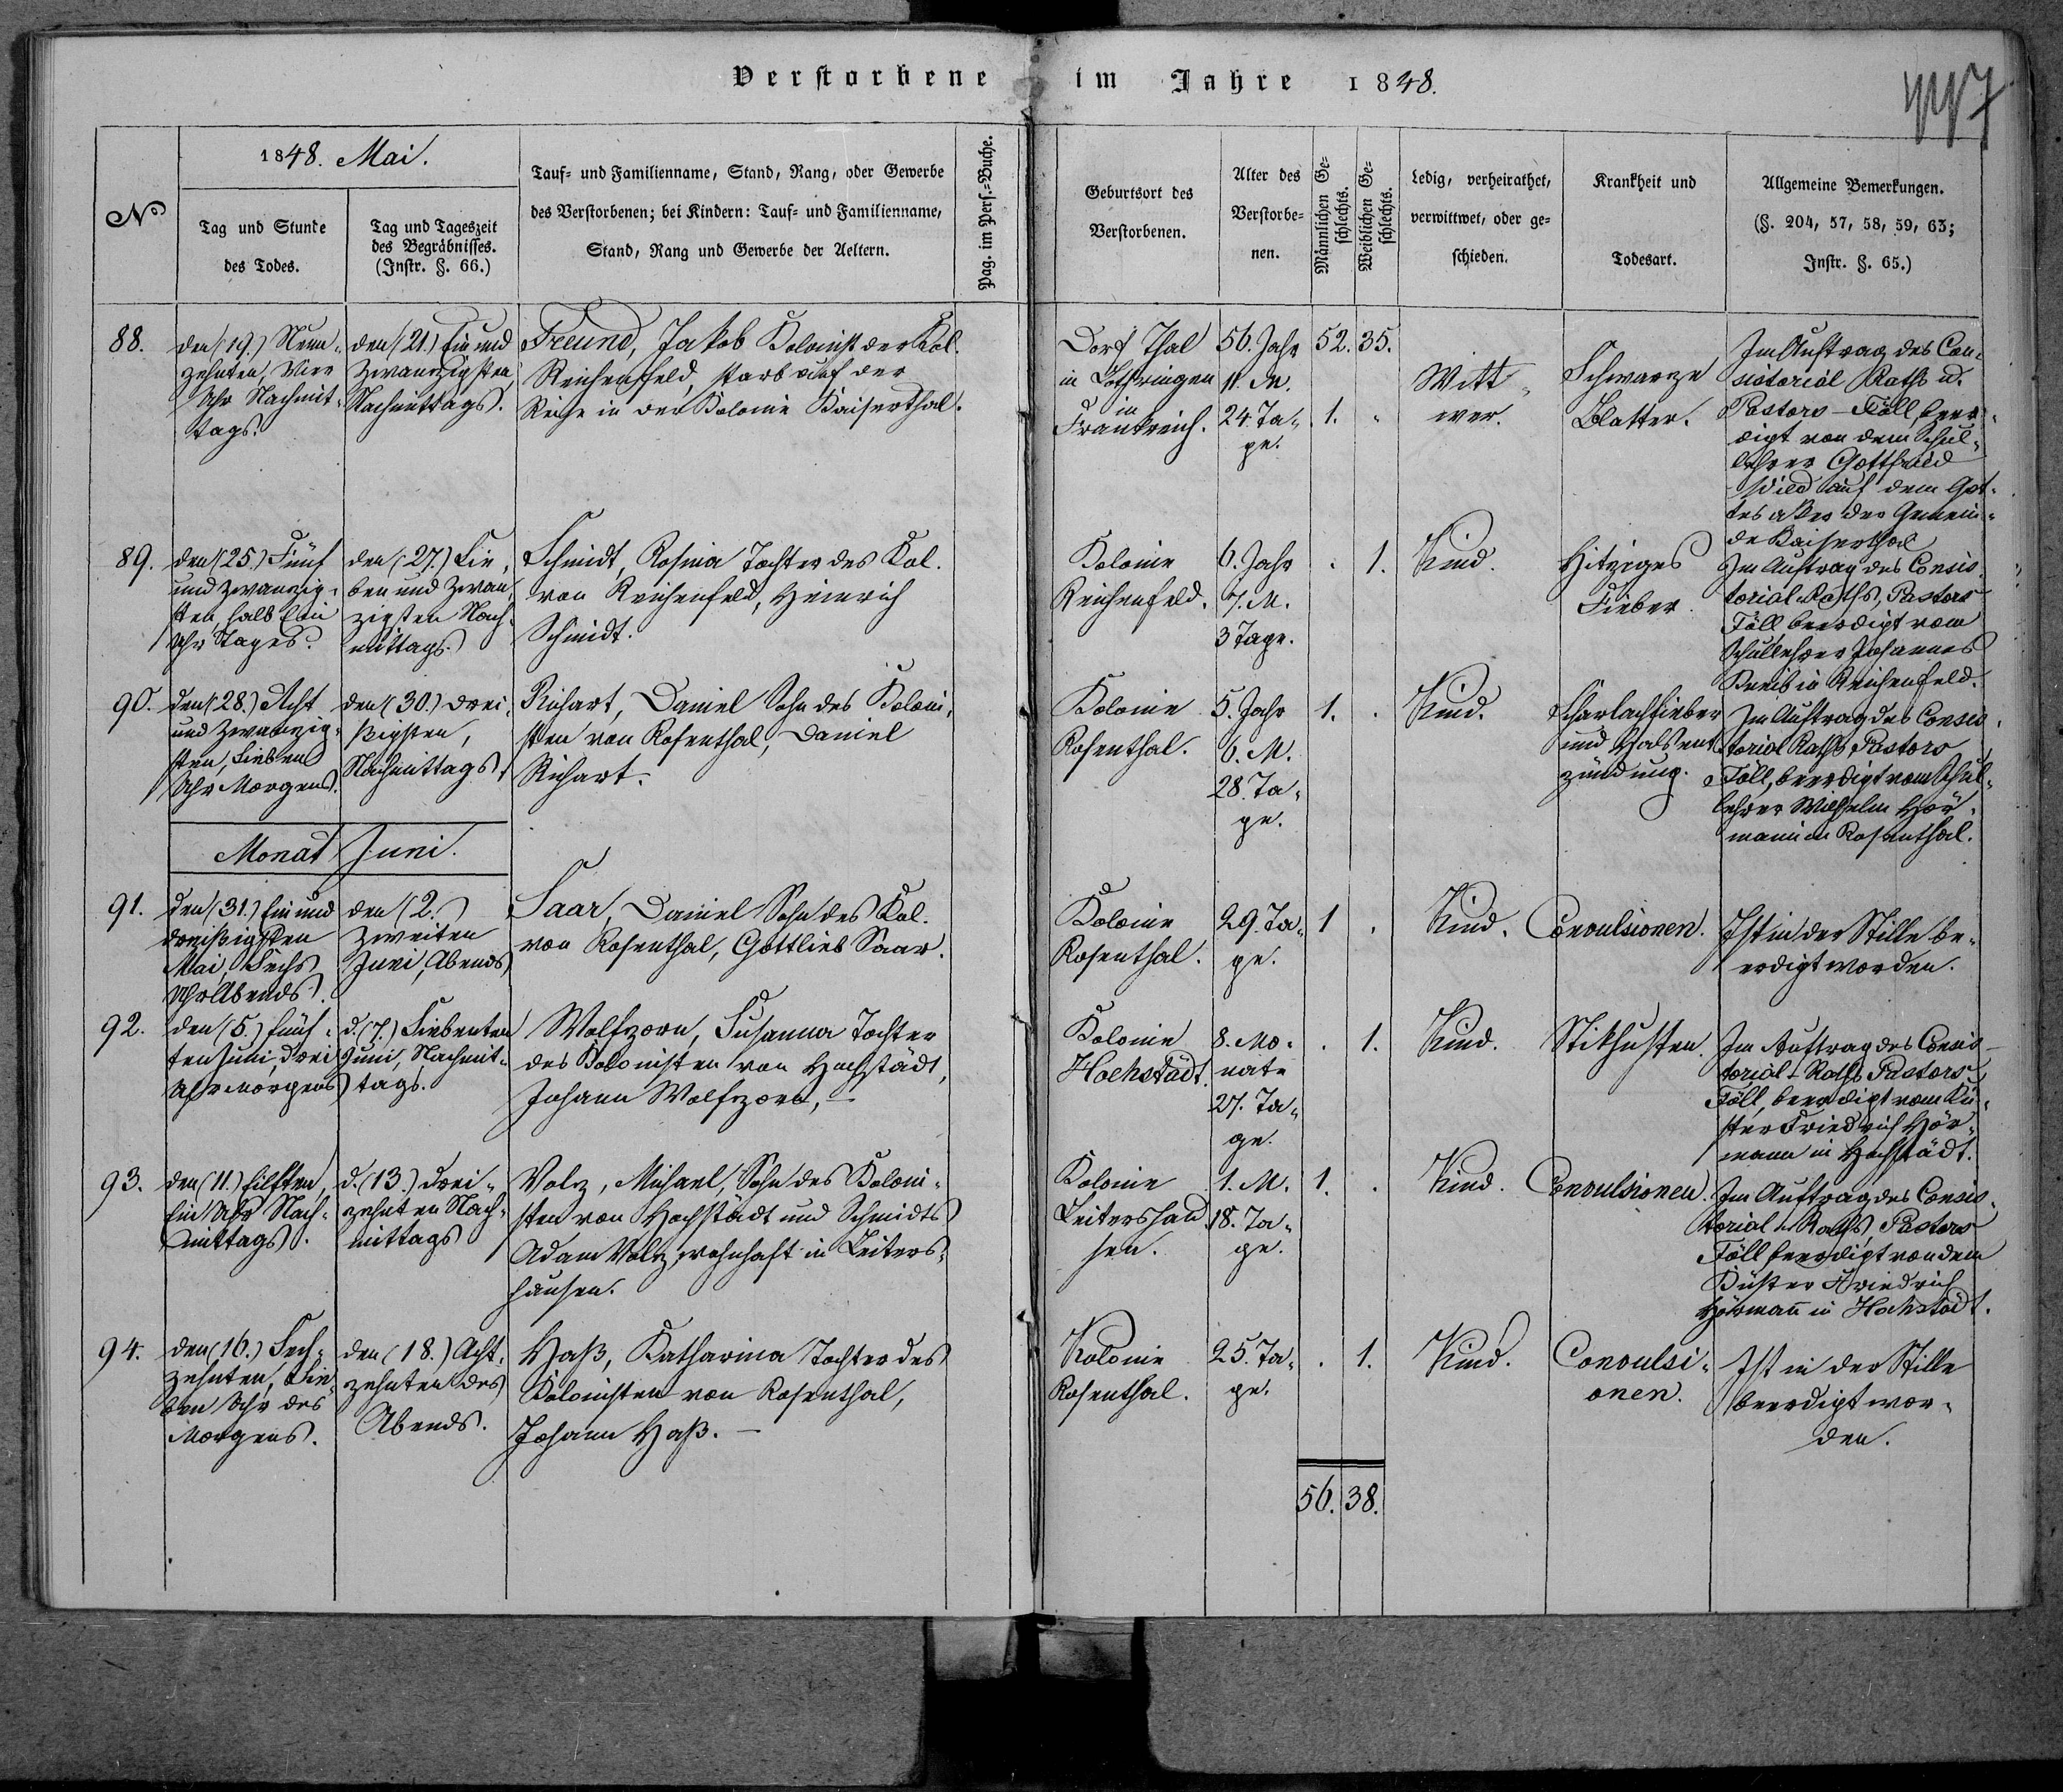 Verstorbene im Jahre 1848.
1848. Mai.
No
Tag und Stunde
des Todes.
Tag und Tageszeit
des Begräbnisses.
(Instr. §. 66.)
Tauf= und Familienname, Stand, Rang, oder Gewerbe
des Verstorbenen; bei Kindern: Tauf= und Familienname,
Stand, Rang und Gewerbe der Aeltern.
Pag. im Pers.=Buche.
Geburtsort des
Verstorbenen.
Alter des
Verstorbe=
nen.
Männlichen Ge=
schlechts.
Weiblichen Ge=
schlechts.
Ledig, verheirathet,
verwittwet, oder ge=
schieden.
Krankheit und
Todesart.
Allgemeine Bemerkungen.
(§. 204, 57, 58, 59, 63;
Instr. §. 65.)
88.
den (19.) Neun-
zehnten, Vier
Uhr Nachmit-
tags.
den (21.) Ein und
Zwanzigsten,
Nachmittags.
Freund, Jakob Kolonist der Kol.
Reichenfeld, starb auf der
Reise in der Kolonie Kaiserthal.
Dorf Thal
in Lothringen
in
Frankreich.
56. Jahr
11. M.
24. Ta-
ge.
52. 35.
1.
Witt-
wer.
Schwarze
Blatter.
Im Auftrag des Con-
sistorial Raths u.
Pastors Föll, beer-
digt von dem Schul-
lehrer Gottfried
Wild auf dem Got-
tes aker der Gemein-
de Kaiserthal
89.
den (25.) Fünf
und zwanzig-
sten, halb Ein
Uhr Tages.
den (27.) Sie-
ben und zwan-
zigsten Nach-
mittags.
Schmidt, Rosina Tochter des Kol.
von Reichenfeld, Heinrich
Schmidt.
Kolonie
Reichenfeld.
6. Jahr
7. M.
3 Tage.
1.
Kind.
Hitziges
Fieber.
Im Auftrag des Consis-
torial-Raths, Pastors
Föll beerdigt vom
Schullehrer Johannes
in Reichenfeld.
90.
den (28.) Acht
und zwanzig-
sten, Sieben
Uhr Morgens.
den (30.) drei-
ßigsten,
Nachmittags.
Richart, Daniel Sohn des Koloni-
sten von Rosenthal, Daniel
Richart.
Kolonie
Rosenthal.
5. Jahr
6. M.
28. Ta-
ge.
1.
Kind.
Scharlachfieber
und Halsent
zündung.
Im Auftrag des Consis-
torial Raths Pastors
Föll, beerdigt vom Schul-
lehrer Wilhelm Hör-
mann in Rosenthal.
Monat Juni.
91.
den (31.) Ein und
dreißigsten
Mai, Sechs
Uhr Abends.
den (2.)
Zweiten
Juni, Abends
Saar, Daniel Sohn des Kol.
von Rosenthal, Gottlieb Saar.
Kolonie
Rosenthal.
29. Ta-
ge.
1
Kind.
Convulsionen.
Ist in der Stille be-
erdigt worden.
92.
den (5.) fünf-
ten Juni, drei
Uhr Morgens
d. (7.) Siebenten
Juni, Nachmit-
tags.
Wolfzorn, Susanna Tochter
des Kolonisten von Hochstädt,
Johann Wolfzorn, –
Kolonie
Hochstädt.
8. Mo-
nate
27. Ta-
ge.
1.
Kind.
Stikhusten.
Im Auftrag des Consis-
torial-Raths Pastors
Föll, beerdigt vom Kü-
ster Friedrich Hör-
mann in Hochstädt.
93.
den (11.) Eilften,
Ein Uhr Nach-
mittags.
d. (13.) drei-
zehnten Nach-
mittags
Volz, Michael, Sohn des Koloni-
sten von Hochstädt und Schmidts
Adam Volz, wohnhaft in Leiters-
hausen.
Kolonie
Leitershau
sen.
1. M.
18. Ta-
ge.
1.
Kind.
Convulsionen.
Im Auftrag des Consis-
torial-Raths, Pastors
Föll beerdigt von dem
Küster Friedrich
Hörmann in Hochstädt.
94.
den (16.) Sech-
zehnten, Sie-
ben Uhr des
Morgens.
den (18.) Acht-
zehnten des
Abends.
Haß, Katharina Tochter des
Kolonisten von Rosenthal,
Johann Haß. –
Kolonie
Rosenthal.
25. Ta-
ge.
1.
Kind.
Convulsi-
onen.
Ist in der Stille
beerdigt wor-
den.
56. 38.